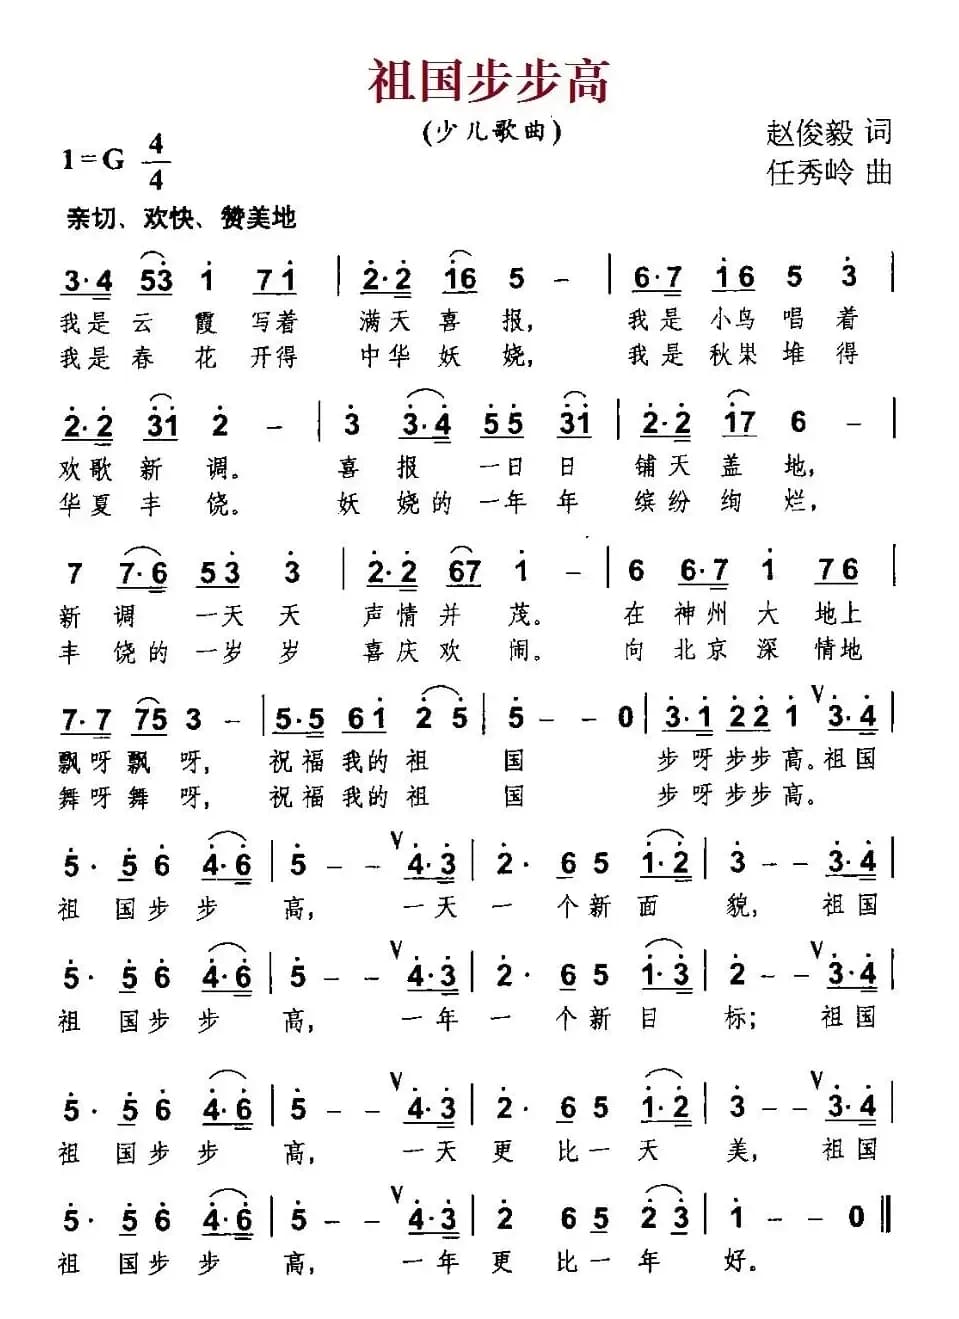 祖国步步高
(少儿歌曲)
赵俊毅 词
1=G 4/4
任秀岭 曲
亲切、欢快、赞美地
3·4 53 1 71 | 2·2 16 5 - | 6·7 16 5 3 |
我是云霞写着 满天喜报, 我是小鸟唱着
我是春花开得 中华妖娆, 我是秋果堆得
2·2 31 2 - | 3 3·4 55 31 | 2·2 17 6 - |
欢歌新调。 喜报一日日 铺天盖地,
华夏丰饶。 妖娆的一年年 缤纷绚烂,
7 7·6 53 3 | 2·2 67 1 - | 6 6·7 1 76 |
新调一天天 声情并茂。 在神州大地上
丰饶的一岁岁 喜庆欢闹。 向北京深情地
7·7 75 3 - | 5·5 61 2 5 | 5 - - 0 | 3·1 22 1 V 3·4 |
飘呀飘呀, 祝福我的祖 国 步呀步步高。祖国
舞呀舞呀, 祝福我的祖 国 步呀步步高。
5· 5 6 4·6 | 5 - - V 4·3 | 2· 6 5 1·2 | 3 - - 3·4 |
祖 国步步 高, 一天一 个新面 貌, 祖国
5· 5 6 4·6 | 5 - - V 4·3 | 2· 6 5 1·3 | 2 - - V 3·4 |
祖 国步步 高, 一年一 个新目 标; 祖国
5· 5 6 4·6 | 5 - - V 4·3 | 2· 6 5 1·2 | 3 - - V 3·4 |
祖 国步步 高, 一天更 比一天 美, 祖国
5· 5 6 4·6 | 5 - - V 4·3 | 2 6 5 2 3 | 1 - - 0 ‖
祖 国步步 高, 一年更 比一年 好。